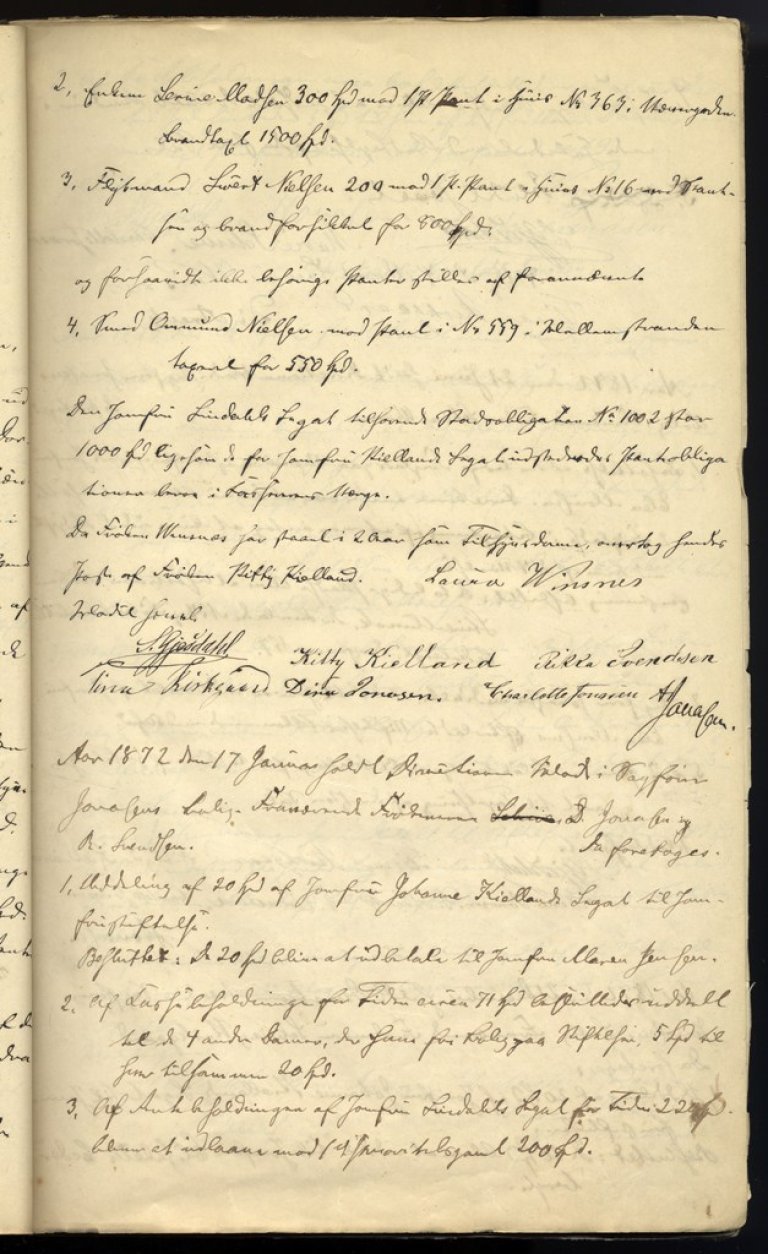 2, Enken Serine Madsen 300 Spd mod 1 Pr Pant i Huus No 363 i
Brandtaxt 1500 Spd.
3, Sivert Nielsen 200 mod 1 Pr. Pant i Huus No 16 med
og brandforsikkret for 800 Spd.
og forsaavidt ikke behørige Panter stilles af forannævnte
4, Smed Ommund Nielsen mod Pant i No 559 i
taxeret for 550 Spd.
Den Jomfru Lindahls Legat tilhørende Stadsobligation No 1002 stor
1000 Spd ligesom de for Jomfru Kiellands Legat udstedende Pantobliga
tioner bero i Kassererens Værge.
Da Frøken Winsnes har staaet i 2 Aar som Tilsynsdame, overtog hendes
Post af Frøken Kitty Kielland. Laura Winsnes
Mødet hævet
S. Gjesdahl
Kitty Kielland Rikka Svendsen
Tina Kirkgaard Dina Jonassen. Charlotte Jonassen A Jonassen.
Aar 1872 den 17 Januar holdt Directionen Møde i Sagfører
Jonassens Bolig. Fraværende Frøknerne D. Jonassen og
R. Svendsen. Da foretoges.
1, Uddeling af 20 Spd af Jomfru Johanne Kiellands Legat til Jom-
frustiftelse.
Besluttet: De 20 Spd bliver at udbetale til Jomfru Maren Jensen.
2, Af Kassebeholdningen for Tiden circa 71 Spd besluttedes uddelt
til de 4 andre Damer, der have fri Bolig paa Stiftelsen, 5 Spd til
hver tilsammen 20 Spd.
3, Af beholdningen af Jomfru Lindahls Legat for Tiden 22
bliver at udlaane mod 1 Prioritetspant 200 Spd.